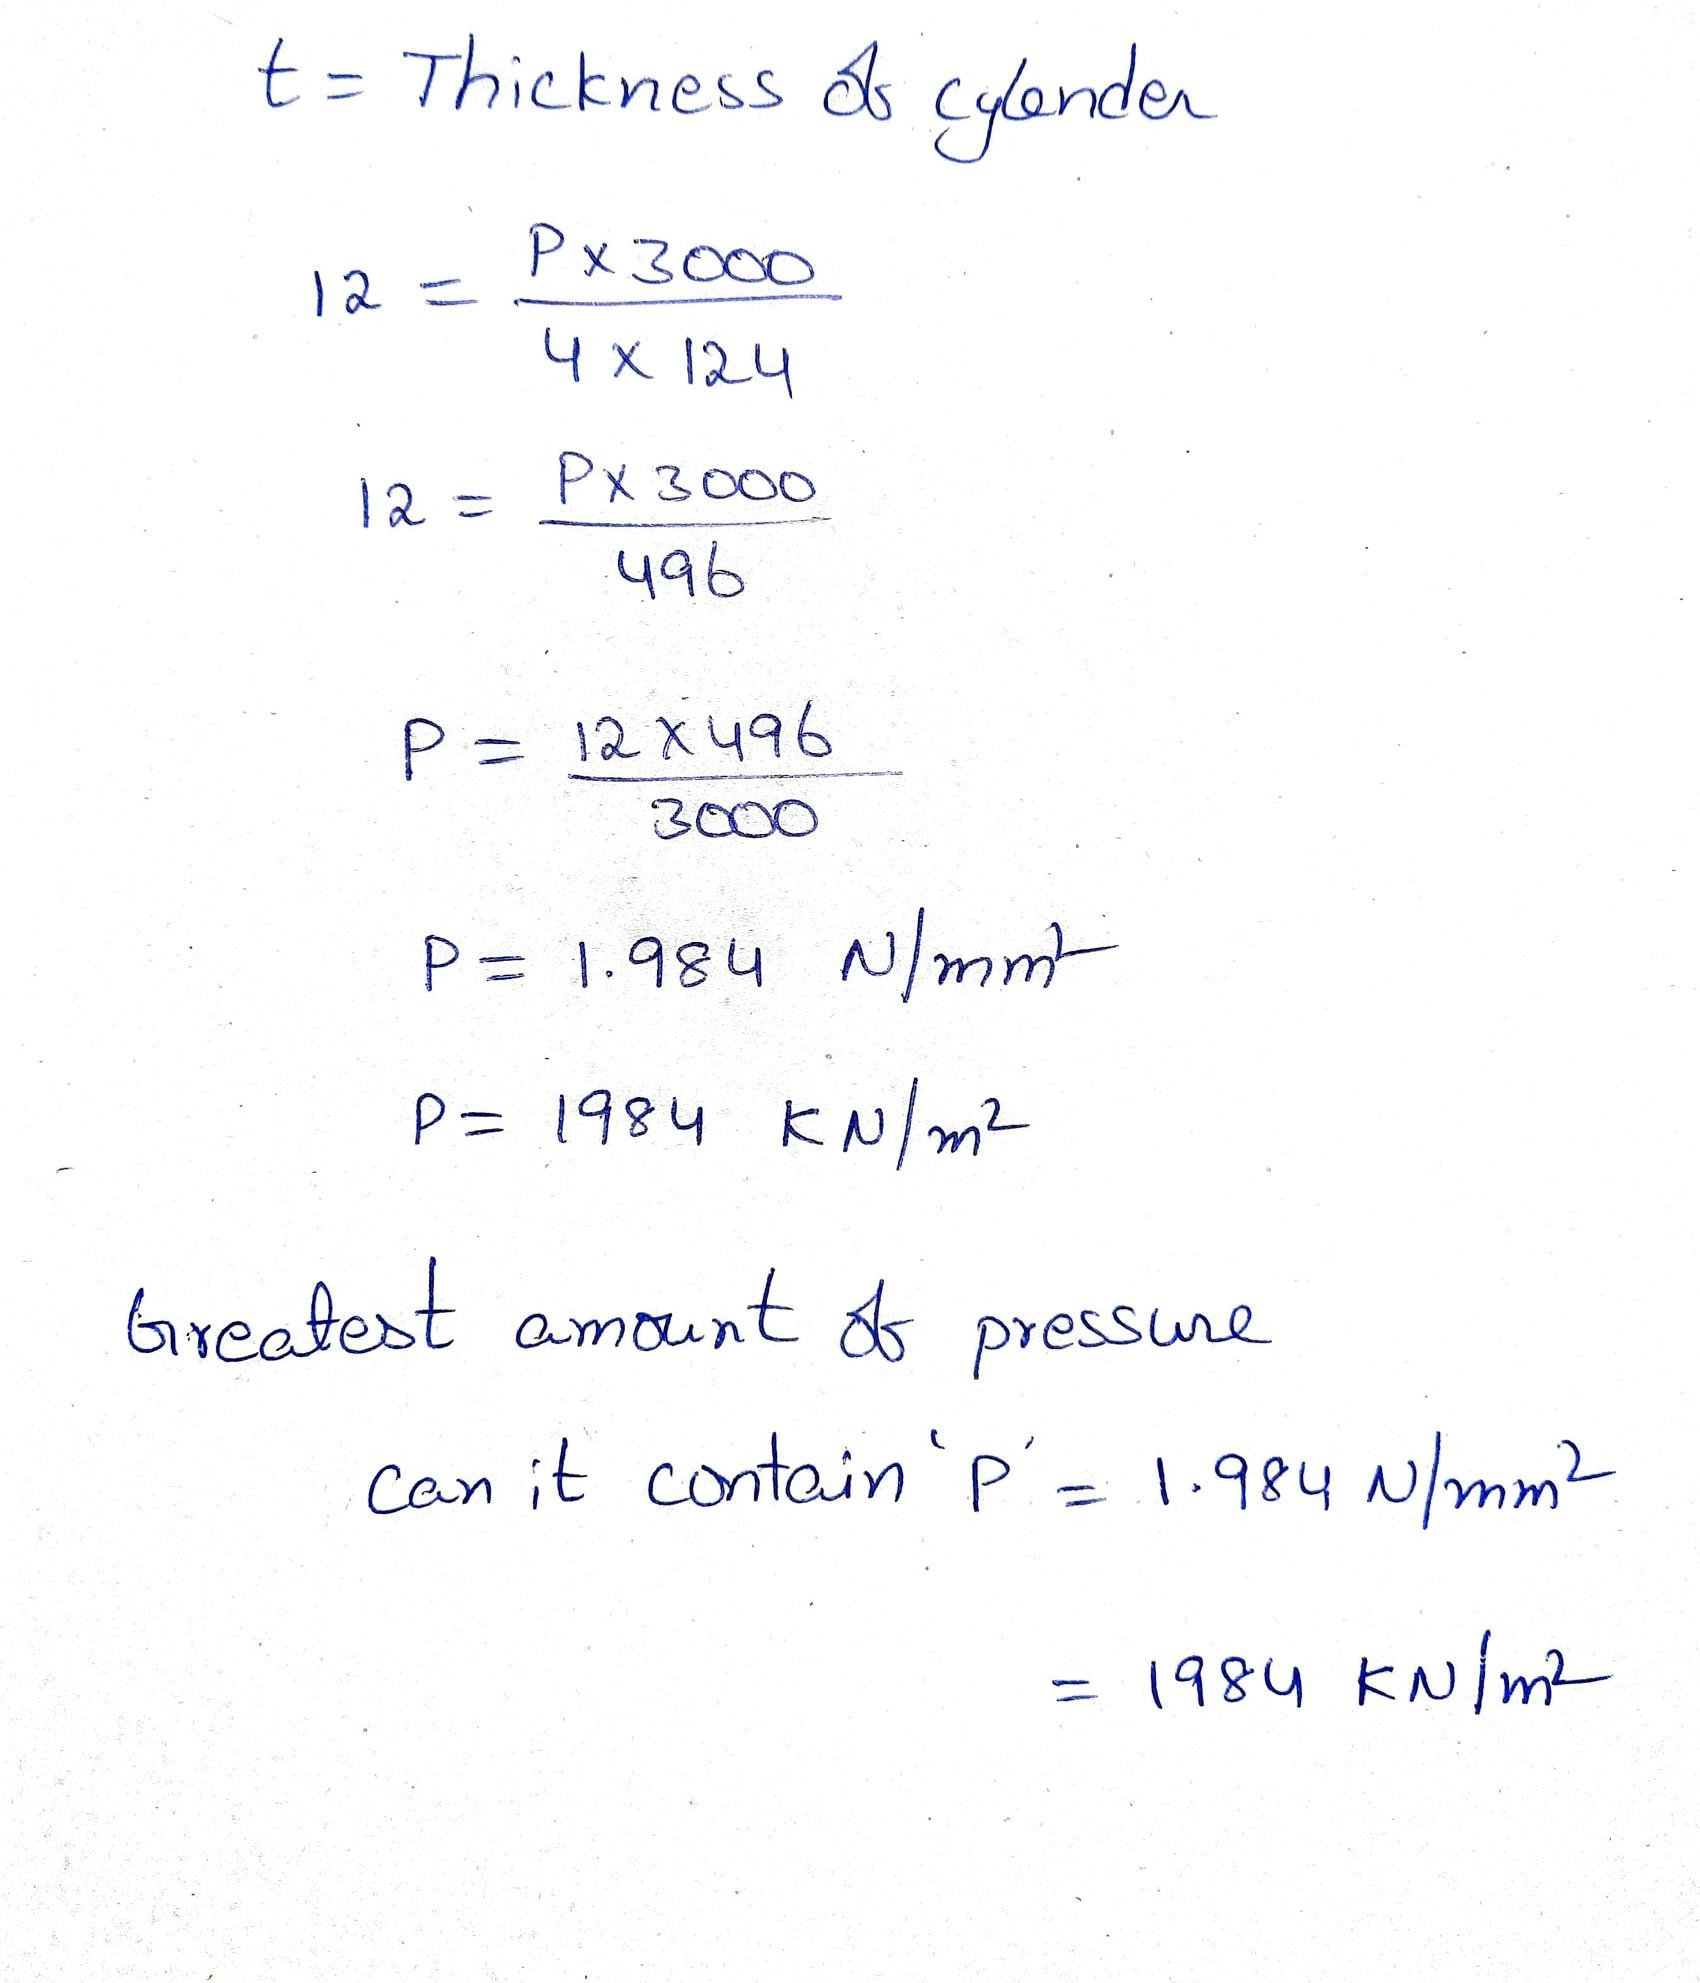 t = Thickness of cylender
12 = P x 3000
4 x 124
12 = P x 3000
496
P = 12 x 496
3000
P = 1.984 N/mm²
P = 1984 KN/m²
Greatest amount of pressure
can it contain 'P' = 1.984 N/mm²
= 1984 KN/m²